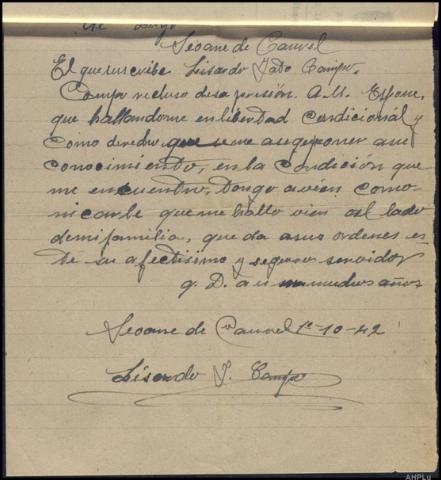 de Lugo
Seoane de Caurel
El que suscribe Lisardo Jato Campo.
Compo recluso de sa prisión. A.U. Espone,
que hallandome en libertad condicional, y
como derecho que se me a seg poner a su
conocimiento, en la condición que
me encuentro, Tengo a vien como
nicarle que me hallo vien al lado
de mi familia, que da a sus ordenes es
te su afectisimo y seguro servidor
g. D. a us muchos años
Seoane de Caurel 1º-10-42
Lisardo J. Campo
AHPLu